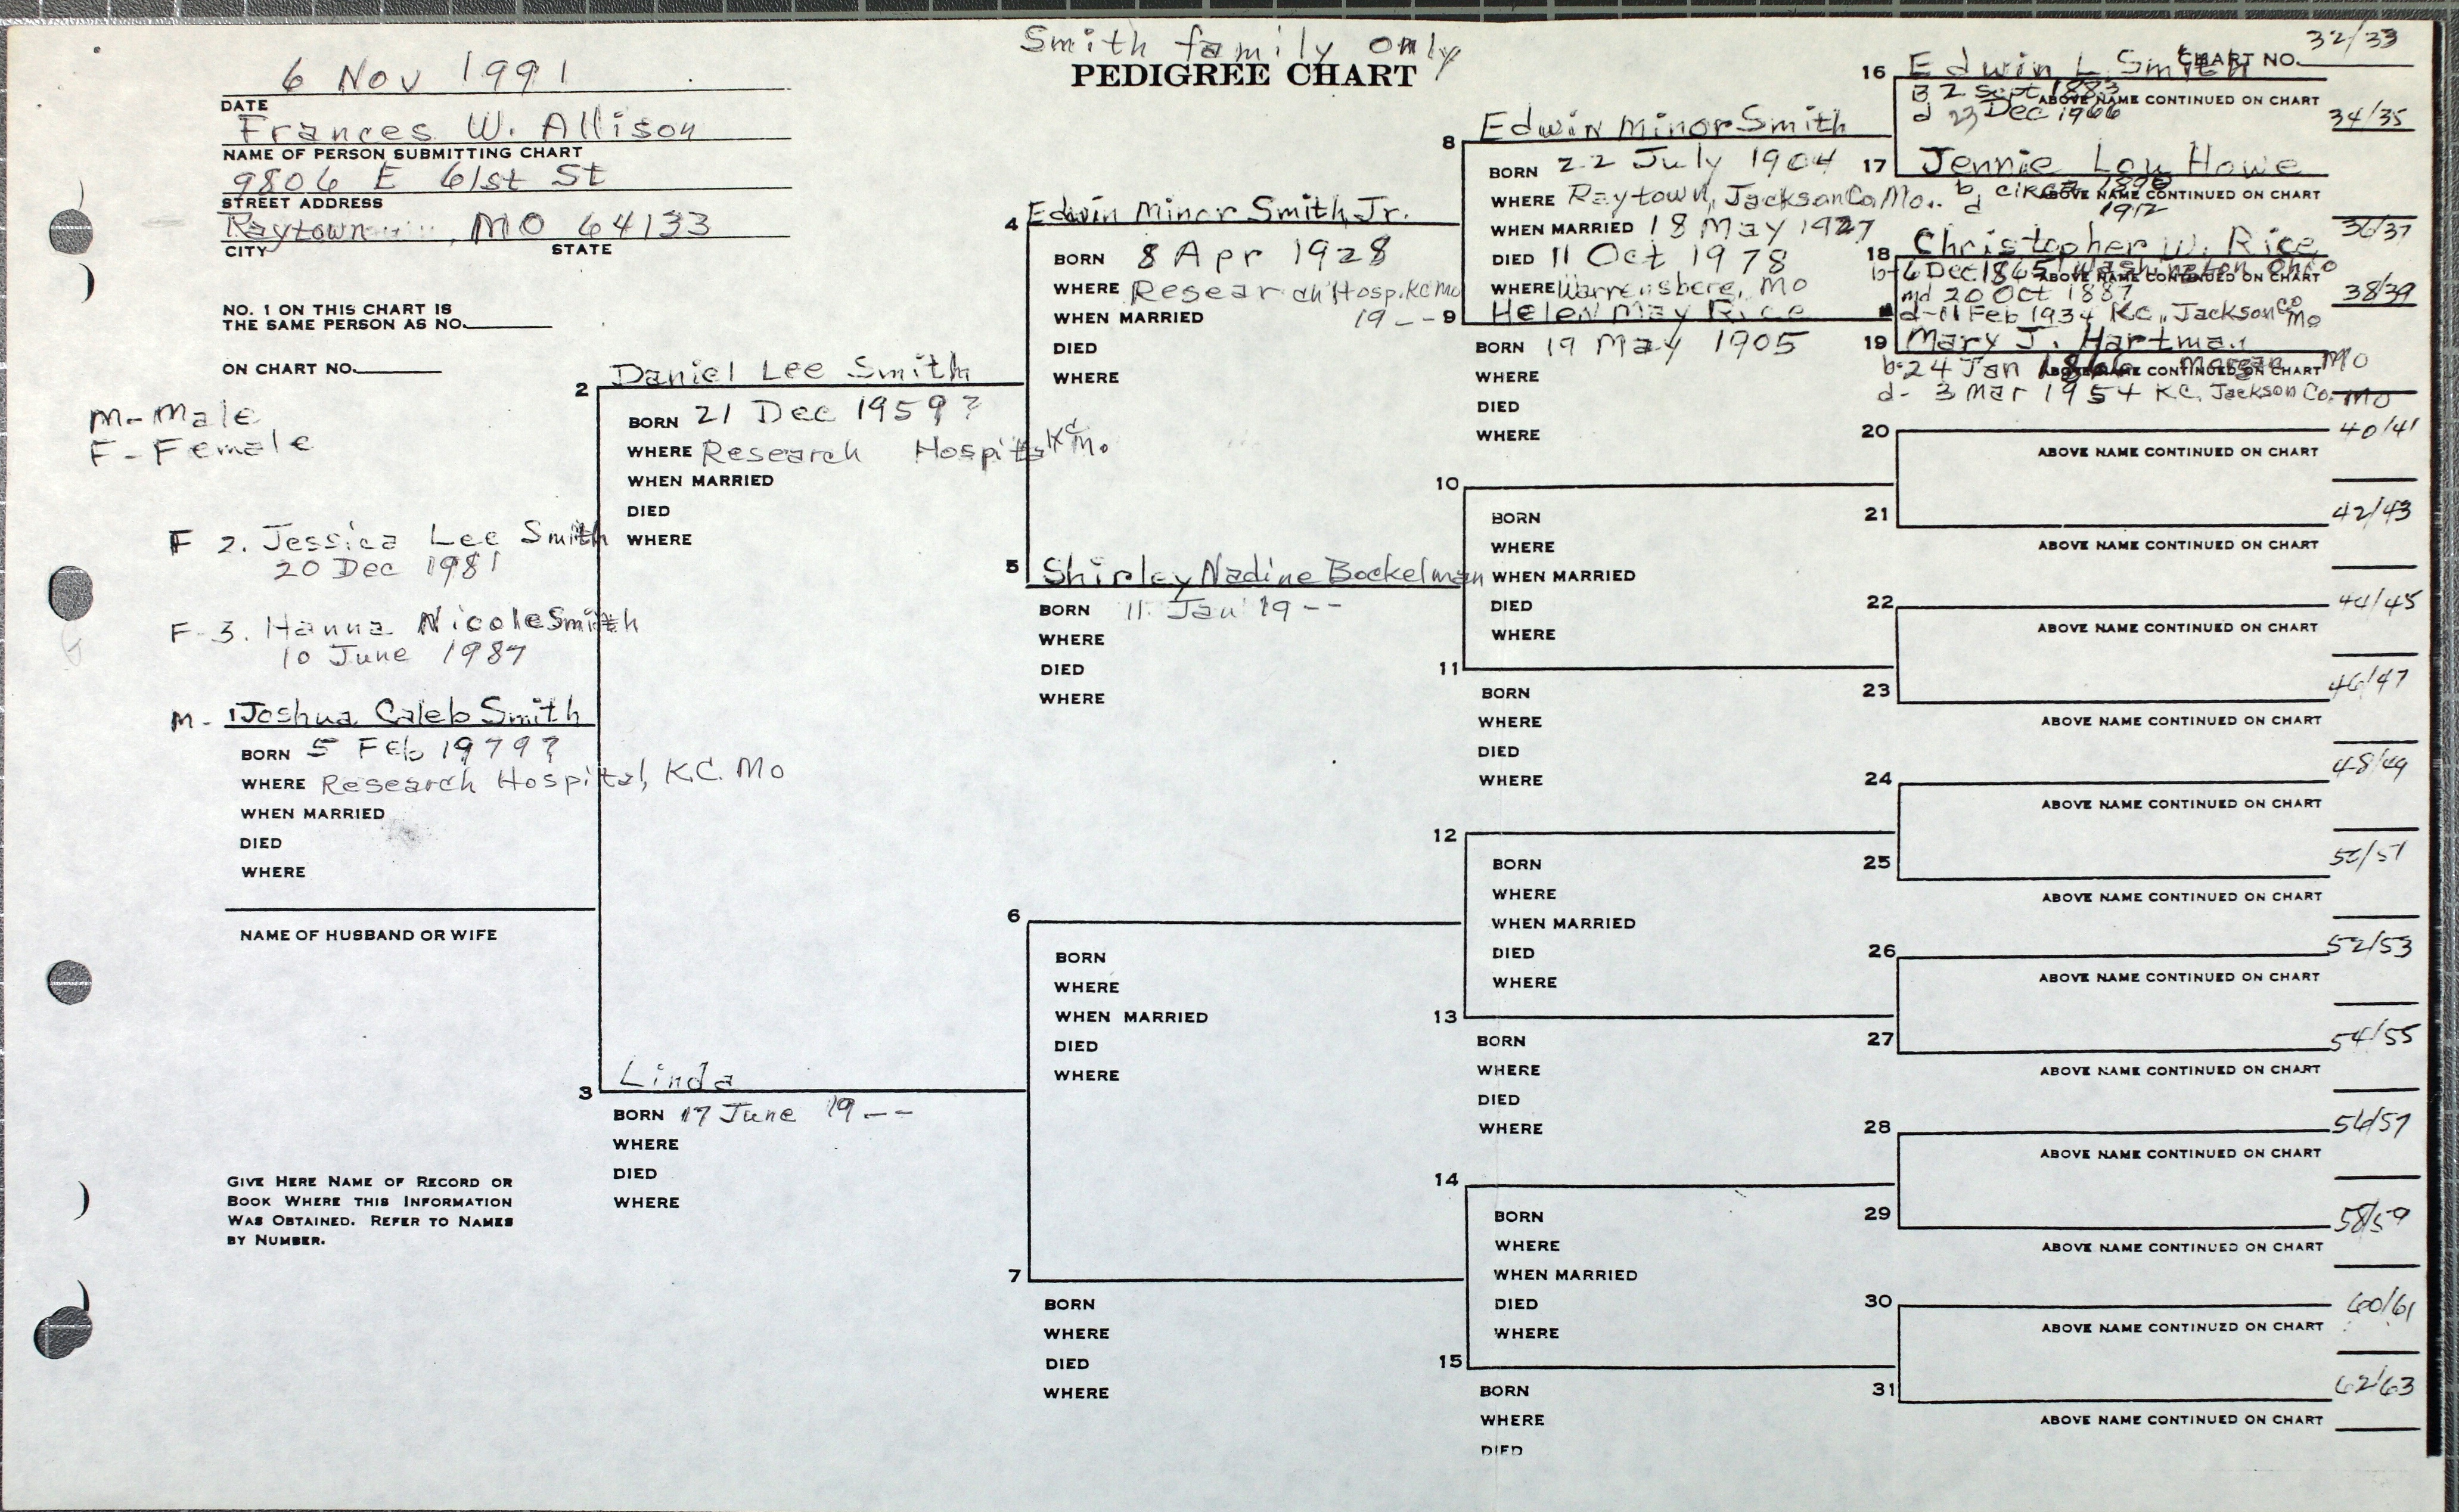 Smith family only
PEDIGREE CHART
CHART NO.
32/33
6 Nov 1991
DATE
Frances W. Allison
NAME OF PERSON SUBMITTING CHART
9806 E 61st St
STREET ADDRESS
Raytown, MO 64133
CITY STATE
NO. 1 ON THIS CHART IS
THE SAME PERSON AS NO.
ON CHART NO.
M-Male
F-Female
F 2. Jessica Lee Smith
20 Dec 1981
F-3. Hanna Nicole Smith
10 June 1987
M- 1 Joshua Caleb Smith
BORN 5 Feb 1979?
WHERE Research Hospital, K.C. Mo
WHEN MARRIED
DIED
WHERE
NAME OF HUSBAND OR WIFE
GIVE HERE NAME OF RECORD OR
BOOK WHERE THIS INFORMATION
WAS OBTAINED. REFER TO NAMES
BY NUMBER.
2 Daniel Lee Smith
BORN 21 Dec 1959?
WHERE Research Hospital KC Mo
WHEN MARRIED
DIED
WHERE
3 Linda
BORN 17 June 19--
WHERE
DIED
WHERE
4 Edwin Minor Smith, Jr.
BORN 8 Apr 1928
WHERE Research Hosp. KC Mo
WHEN MARRIED 19--
DIED
WHERE
5 Shirley Nadine Bockelman
BORN 11 Jan 19--
WHERE
DIED
WHERE
6
BORN
WHERE
WHEN MARRIED
DIED
WHERE
7
BORN
WHERE
DIED
WHERE
8 Edwin Minor Smith
BORN 22 July 1904
WHERE Raytown, Jackson Co, Mo.
WHEN MARRIED 18 May 1927
DIED 11 Oct 1978
WHERE Warrensberg, Mo
9 Helen May Rice
BORN 19 May 1905
WHERE
DIED
WHERE
10
BORN
WHERE
WHEN MARRIED
DIED
WHERE
11
BORN
WHERE
DIED
WHERE
12
BORN
WHERE
WHEN MARRIED
DIED
WHERE
13
BORN
WHERE
DIED
WHERE
14
BORN
WHERE
WHEN MARRIED
DIED
WHERE
15
BORN
WHERE
DIED
16 Edwin L. Smith
B 2 Sept 1883
ABOVE NAME CONTINUED ON CHART
d 23 Dec 1966
34/35
17 Jennie Lou Howe
b circa
ABOVE NAME CONTINUED ON CHART
d 1912
36/37
18 Christopher W. Rice
b-6 Dec 1865 Washington Ohio
ABOVE NAME CONTINUED ON CHART
md 20 Oct 1887
38/39
d-11 Feb 1934 K.C., Jackson Co Mo
19 Mary J. Hartman
b-24 Jan 1866 Morgan Mo
ABOVE NAME CONTINUED ON CHART
d- 3 Mar 1954 K.C. Jackson Co. Mo
20 40/41
ABOVE NAME CONTINUED ON CHART
21 42/43
ABOVE NAME CONTINUED ON CHART
22 44/45
ABOVE NAME CONTINUED ON CHART
23 46/47
ABOVE NAME CONTINUED ON CHART
24 48/49
ABOVE NAME CONTINUED ON CHART
25 50/51
ABOVE NAME CONTINUED ON CHART
26 52/53
ABOVE NAME CONTINUED ON CHART
27 54/55
ABOVE NAME CONTINUED ON CHART
28 56/57
ABOVE NAME CONTINUED ON CHART
29 58/59
ABOVE NAME CONTINUED ON CHART
30 60/61
ABOVE NAME CONTINUED ON CHART
31 62/63
ABOVE NAME CONTINUED ON CHART